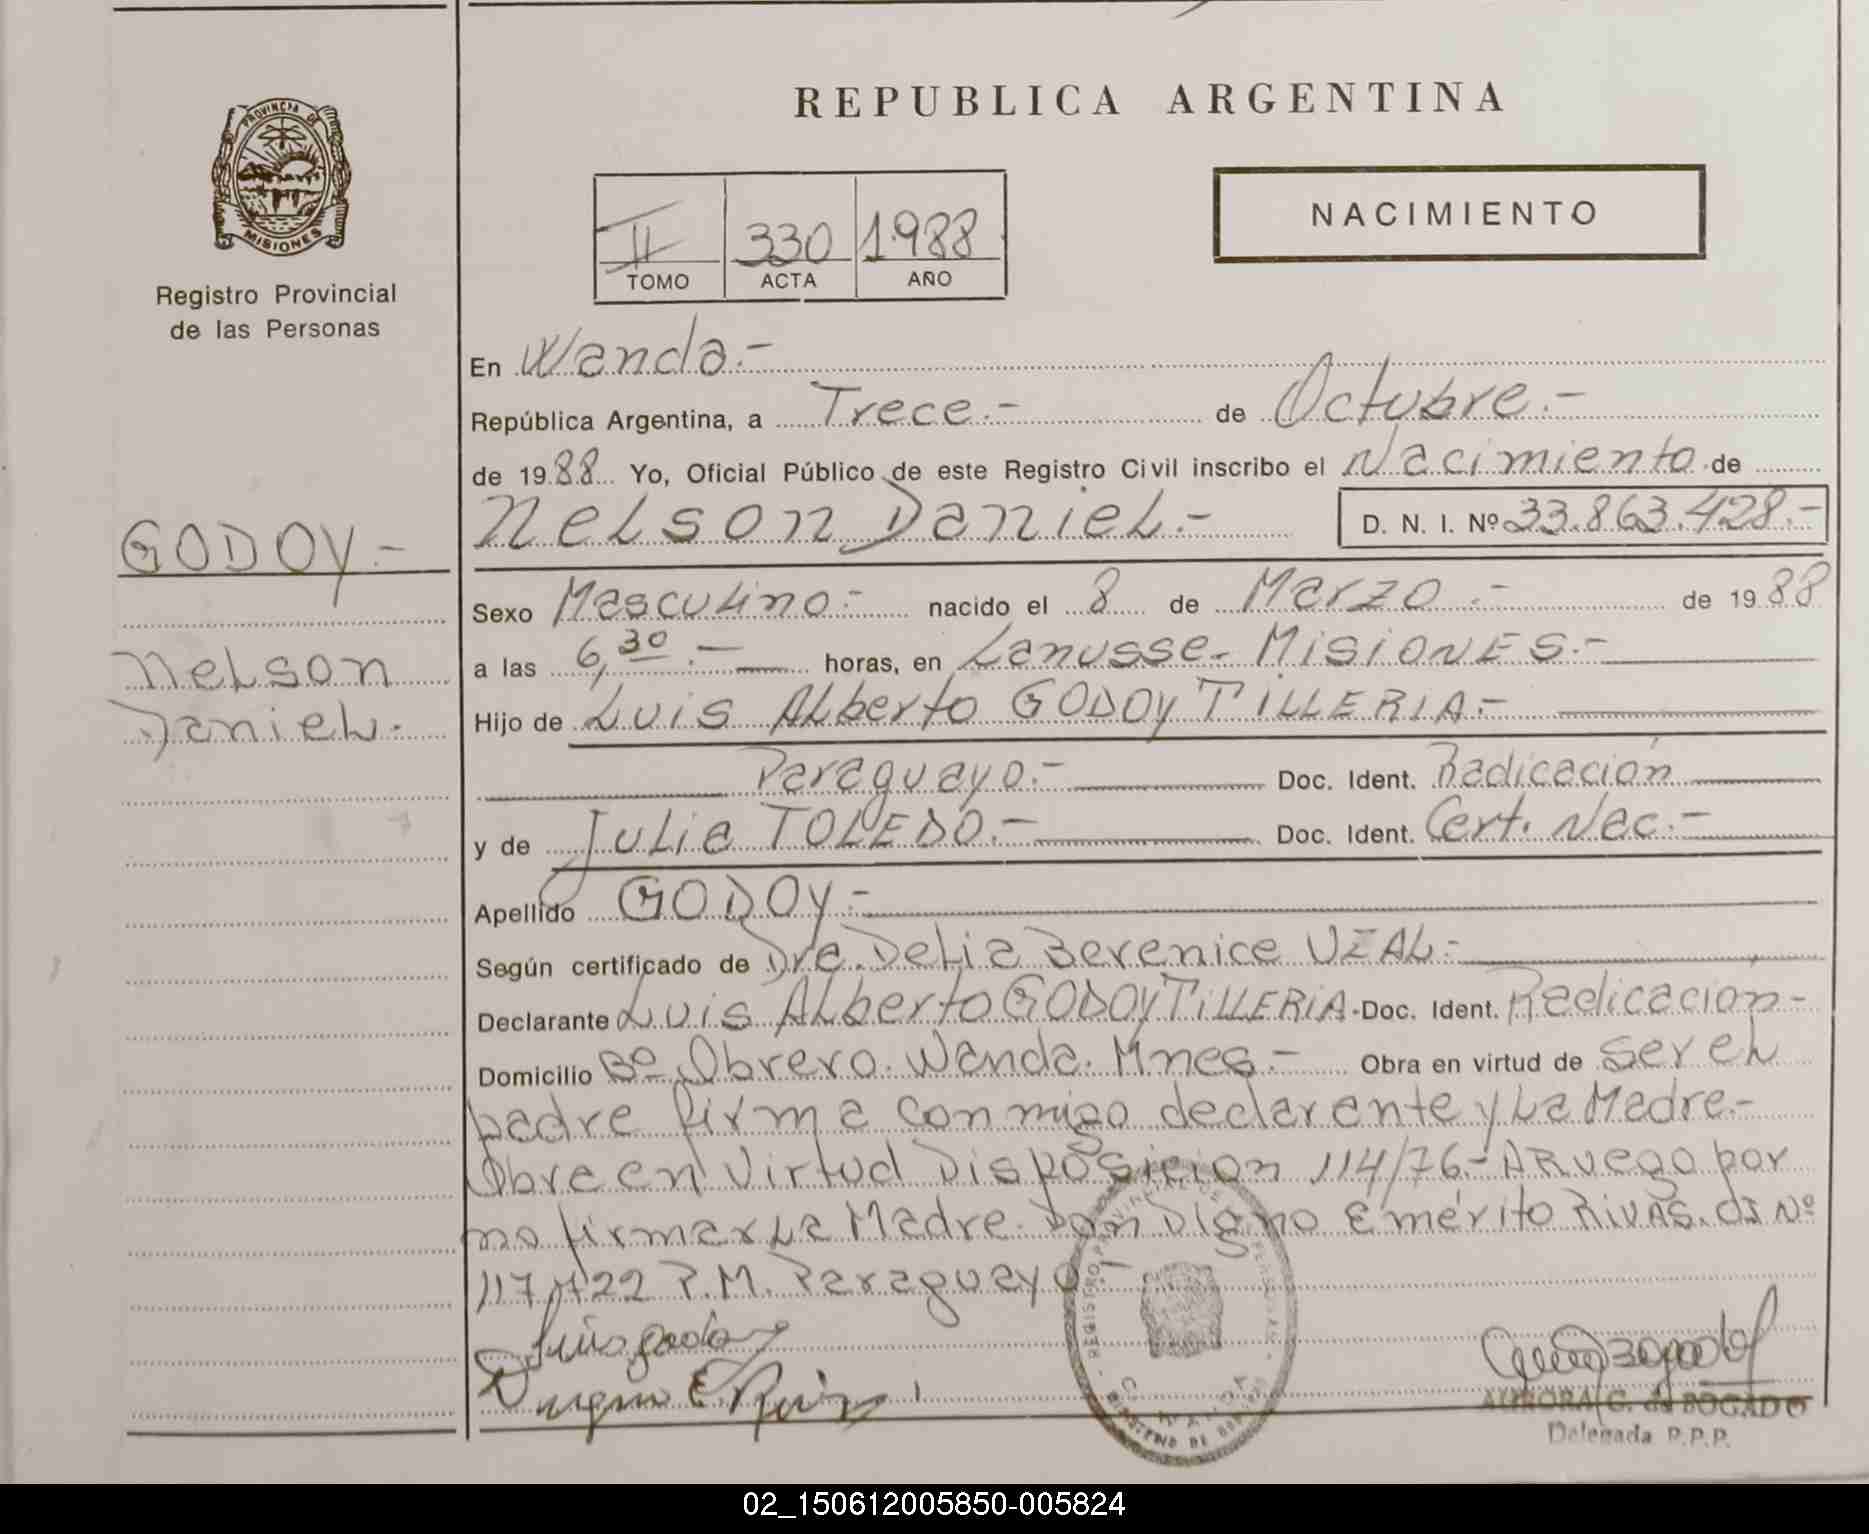 REPUBLICA ARGENTINA
PROVINCIA DE
MISIONES
Registro Provincial
de las Personas
NACIMIENTO
II 330 1.988
TOMO ACTA AÑO
En Wanda.-
República Argentina, a Trece.- de Octubre.-
de 1988 Yo, Oficial Público de este Registro Civil inscribo el Nacimiento de
Nelson Daniel.- D. N. I. Nº 33.863.428.-
GODOY.-
Nelson
Daniel.-
Sexo Masculino.- nacido el 8 de Marzo.- de 1988
a las 6,30.- horas, en Lanusse- MISIONES.-
Hijo de Luis Alberto GODOY TILLERIA.-
Paraguayo.- Doc. Ident. Radicación
y de Julia TOLEDO.- Doc. Ident. Cert. Nac.-
Apellido GODOY.-
Según certificado de Dra. Delia Berenice VIAL.-
Declarante Luis Alberto GODOY TILLERIA.- Doc. Ident. Radicación-
Domicilio Bº Obrero. Wanda. Mnes.- Obra en virtud de ser el
padre firma conmigo declarante y la Madre.-
Obra en Virtud Disposición 114/76.- A Ruego por
no firmar la Madre. Don Digno Emérito RIVAS. CI Nº
117.722 P.M. Paraguayo.-
Luis godoy
Digno E. Rivas
REGISTRO PROVINCIAL DE LAS PERSONAS
WANDA
MINISTERIO DE GOBIERNO
AURORA G. de BOGADO
Delegada R.P.P.
02_150612005850-005824